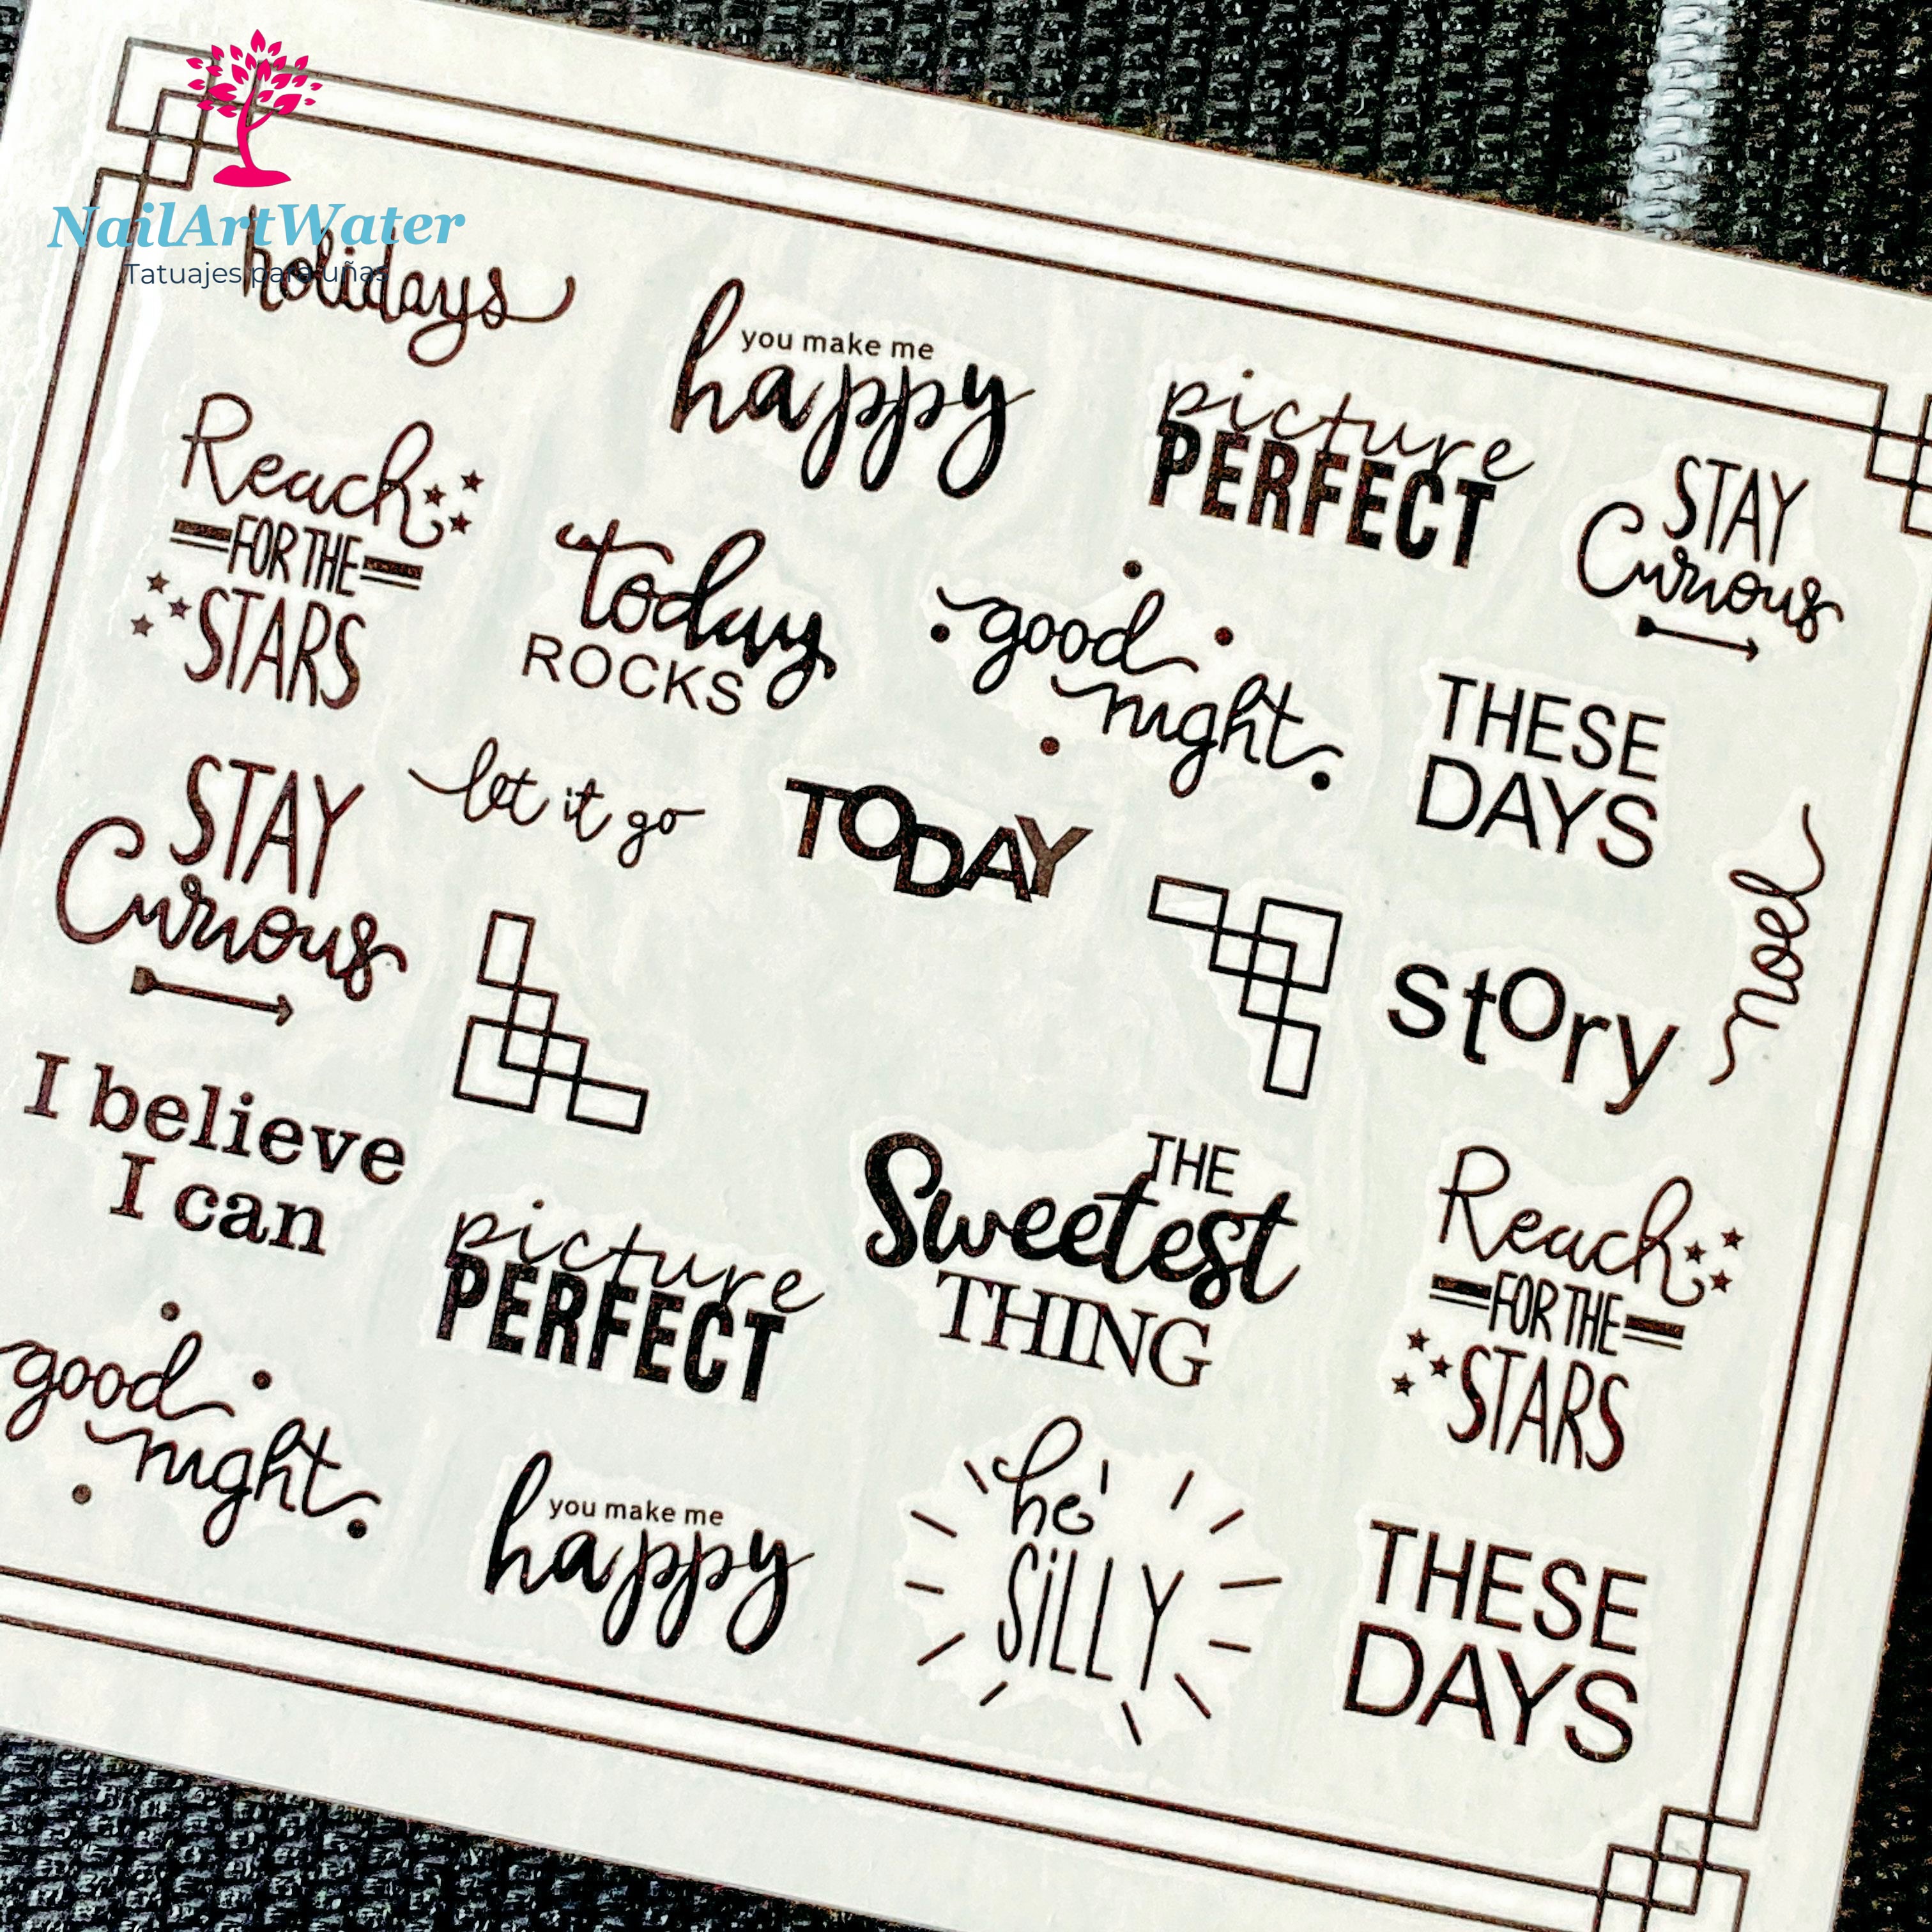 NailArtWater
Tatuajes para uñas
holidays
you make me
happy
picture
PERFECT
STAY
Curious
Reach
FOR THE
STARS
today
ROCKS
good
night
THESE
DAYS
STAY
Curious
let it go
TODAY
noel
story
I believe
I can
picture
PERFECT
THE
Sweetest
THING
Reach
FOR THE
STARS
good
night
you make me
happy
he
SiLLY
THESE
DAYS